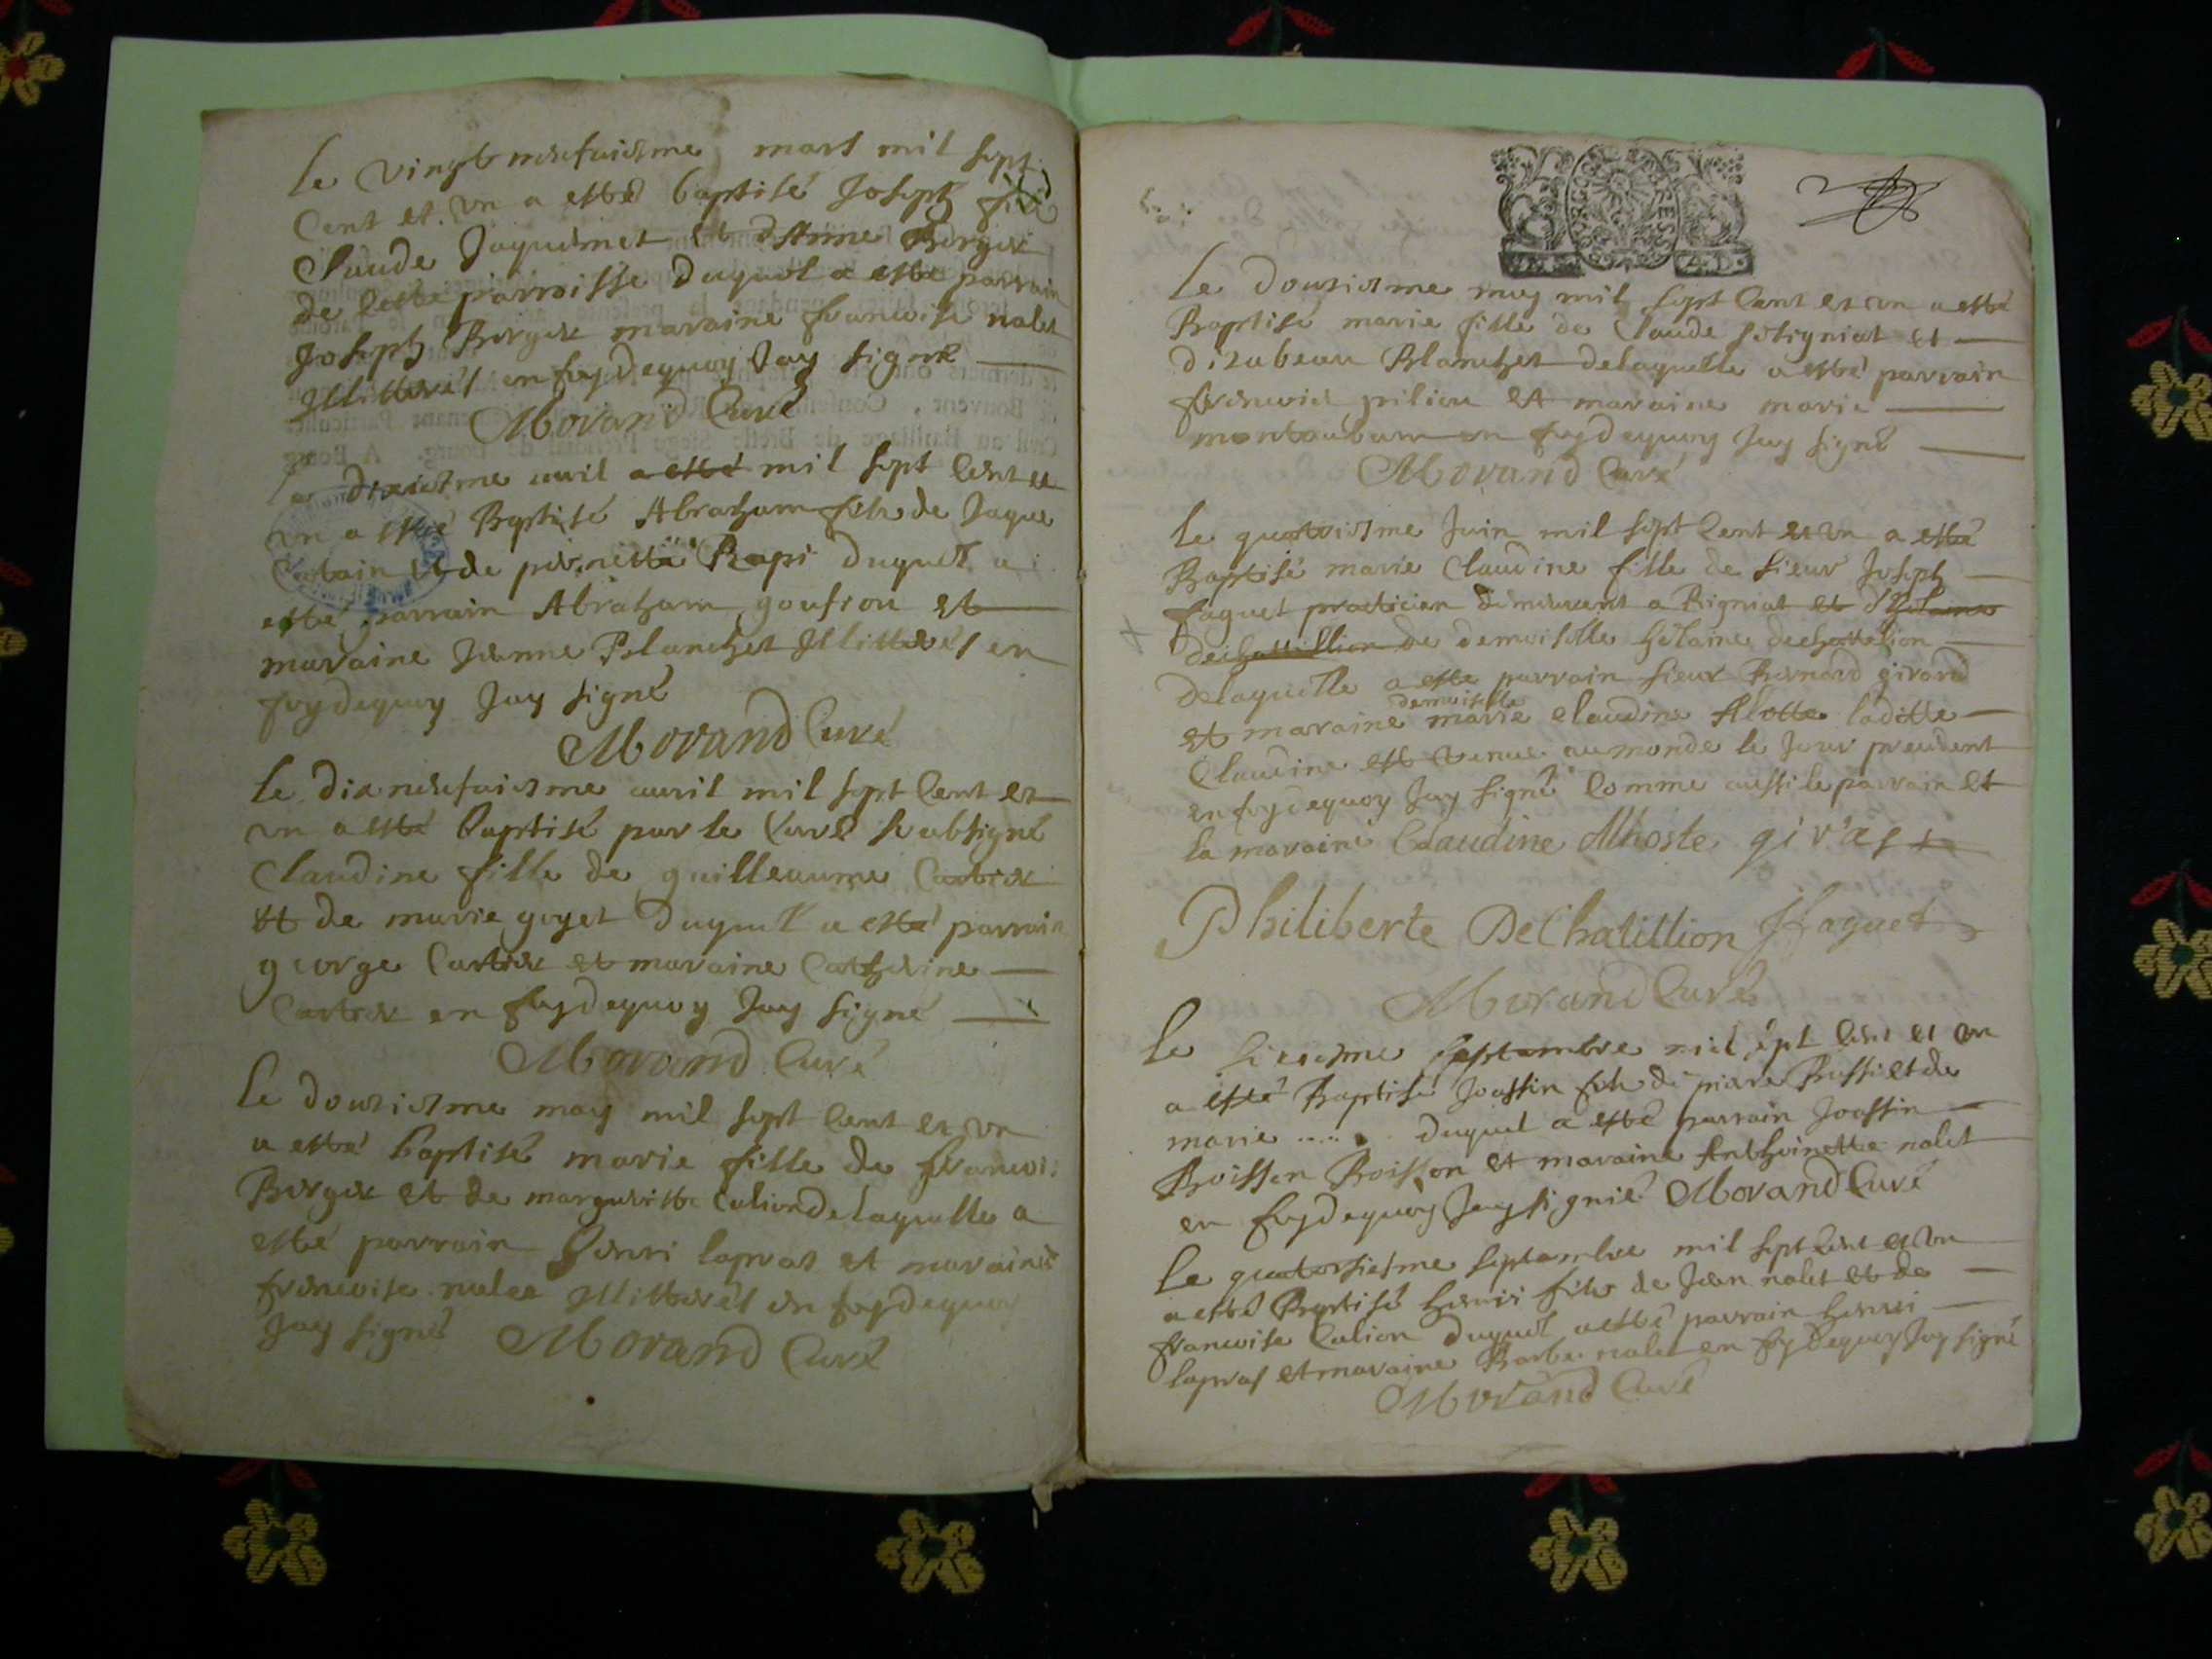 Le vingt neufuiesme mars mil sept
Cent et un a esté baptisé Joseph
Claude Jaquemet et d'Anne Berger
de cette parroisse duquel a esté parrain
Joseph Berger maraine francoise nalet
Illitterés en foy de quoy Jay signé
Morand Curé
Le dixiesme avril a esté mil sept cent et
un a esté Baptisé Abraham fils de Jaque
et de pernette Rapi duquel a
esté parrain Abraham goufion et
maraine Jeanne Blanchet Illitterés en
foy de quoy Jay signé
Morand Curé
Le dixneufuiesme avril mil sept cent et
un a esté Baptisé par le Curé soubsigné
Claudine fille de guilleaume Cartier
et de marie goyet duquel a esté parrain
george Cartier et maraine Catherine
Cartier en foy de quoy Jay signé
Morand Curé
Le douziesme may mil sept cent et un
a esté baptisé marie fille de francoi
Berger et de margueritte Culion de laquelle a
esté parrain henri lapras et maraine
francoise nalee Illitterés en foy de quoy
Jay signé Morand Curé
Le douziesme may mil sept cent et un a esté
Baptisé marie fille de Claude et
dizabeau Blanchet de laquelle a esté parrain
francois pilion et maraine marie
montauban en foy de quoy Jay signé
Morand Curé
Le quatriesme Juin mil sept cent et un a esté
Baptisé marie Claudine fille de sieur Joseph
faguet practicien demeurant a Rigniat et
dechatillion de demoiselle helaine dechatelion
de laquelle a esté parrain sieur Bernard girard
demoiselle
et maraine marie claudine Alotte laditte
Claudine est venue au monde le Jour precedent
en foy de quoy Jay signé comme aussi le parrain et
la maraine Claudine Alhoste
Philiberte DeChatillion Jfaguet
Morand Curé
Le siexiesme septambre mil sept cent et un
a esté Baptisé Joassin fils de piere Bussi et de
marie ..... duquel a esté parrain Joassin
Boisson Boisson et maraine Anthoinette nalet
en foy de quoy Jay signié Morand Curé
Le quatorsiesme septambre mil sept cent et un
a esté Baptisé henri fils de Jean nalet et de
francoise Culion duquel a esté parrain henri
lapras et maraine Barbe nalet en foy de quoy Jay signé
Morand Curé